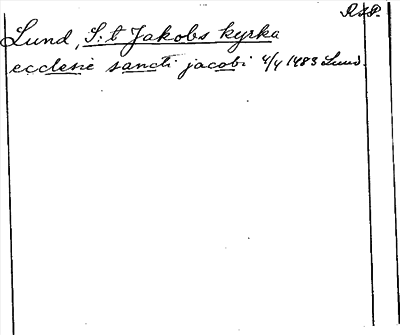 RAP.
Lund, S:t Jakobs kyrka
ecclesie sancti jacobi 4/4 1483 Lund.